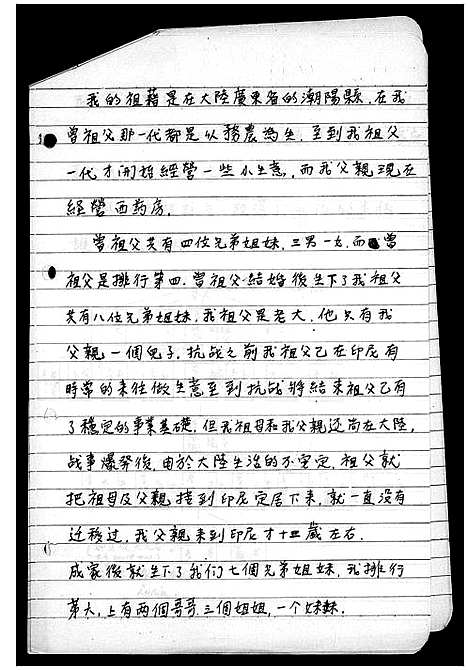 我的祖藉是在大陸廣東省的潮陽縣.在我
曾祖父那一代都是以務農為生.至到我祖父
一代才開始經營一些小生意,而我父親現在
經營西葯房.
曾祖父共有四位兄弟姐妹,三男一女.而曾
祖父是排行第四.曾祖父結婚後生下了我祖父
共有八位兄弟姐妹,我祖父是老大.他只有我
父親一個兒子.抗战之前我祖父已在印尼有
時常的來往做生意至到抗战將結束祖父已有
了穩定的事業基礎.但我祖母和我父親还尚在大陸,
战事爆發後.由於大陸生活的不安定.祖父就
把祖母及父親接到印尼定居下來,就一直沒有
迁移过.我父親來到印尼才十三歲左右.
成家後就生下了我們七個兄弟姐妹.我排行
第六.上有兩個哥哥.三個姐姐,一个妹妹.